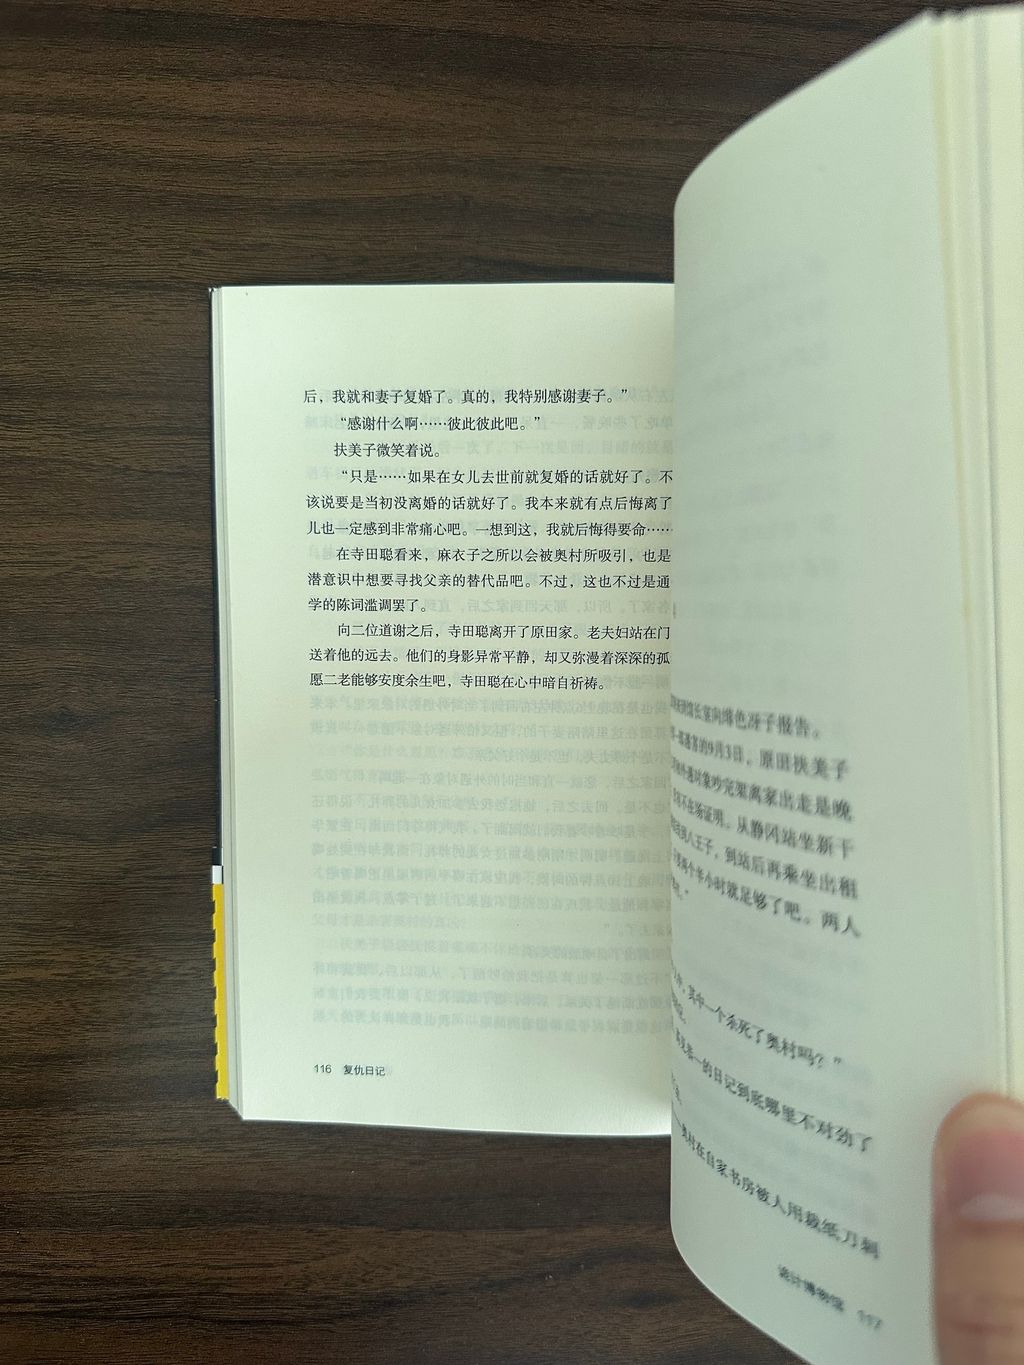 后，我就和妻子复婚了。真的，我特别感谢妻子。”
“感谢什么啊……彼此彼此吧。”
扶美子微笑着说。
“只是……如果在女儿去世前就复婚的话就好了。不
该说要是当初没离婚的话就好了。我本来就有点后悔离了
儿也一定感到非常痛心吧。一想到这，我就后悔得要命……
在寺田聪看来，麻衣子之所以会被奥村所吸引，也是
潜意识中想要寻找父亲的替代品吧。不过，这也不过是通
学的陈词滥调罢了。
向二位道谢之后，寺田聪离开了原田家。老夫妇站在门
送着他的远去。他们的身影异常平静，却又弥漫着深深的孤
愿二老能够安度余生吧，寺田聪在心中暗自祈祷。
116 复仇日记
馆长室向绯色冴子报告。
的9月3日，原田扶美子
外遇对象吵完架离家出走是晚
不在场证明。从静冈站坐新干
到八王子，到站后再乘坐出租
两个半小时就足够了吧。两人
”
其中一个杀死了奥村吗？”
一的日记到底哪里不对劲了
奥村在自家书房被人用裁纸刀刺
诡计博物馆 117